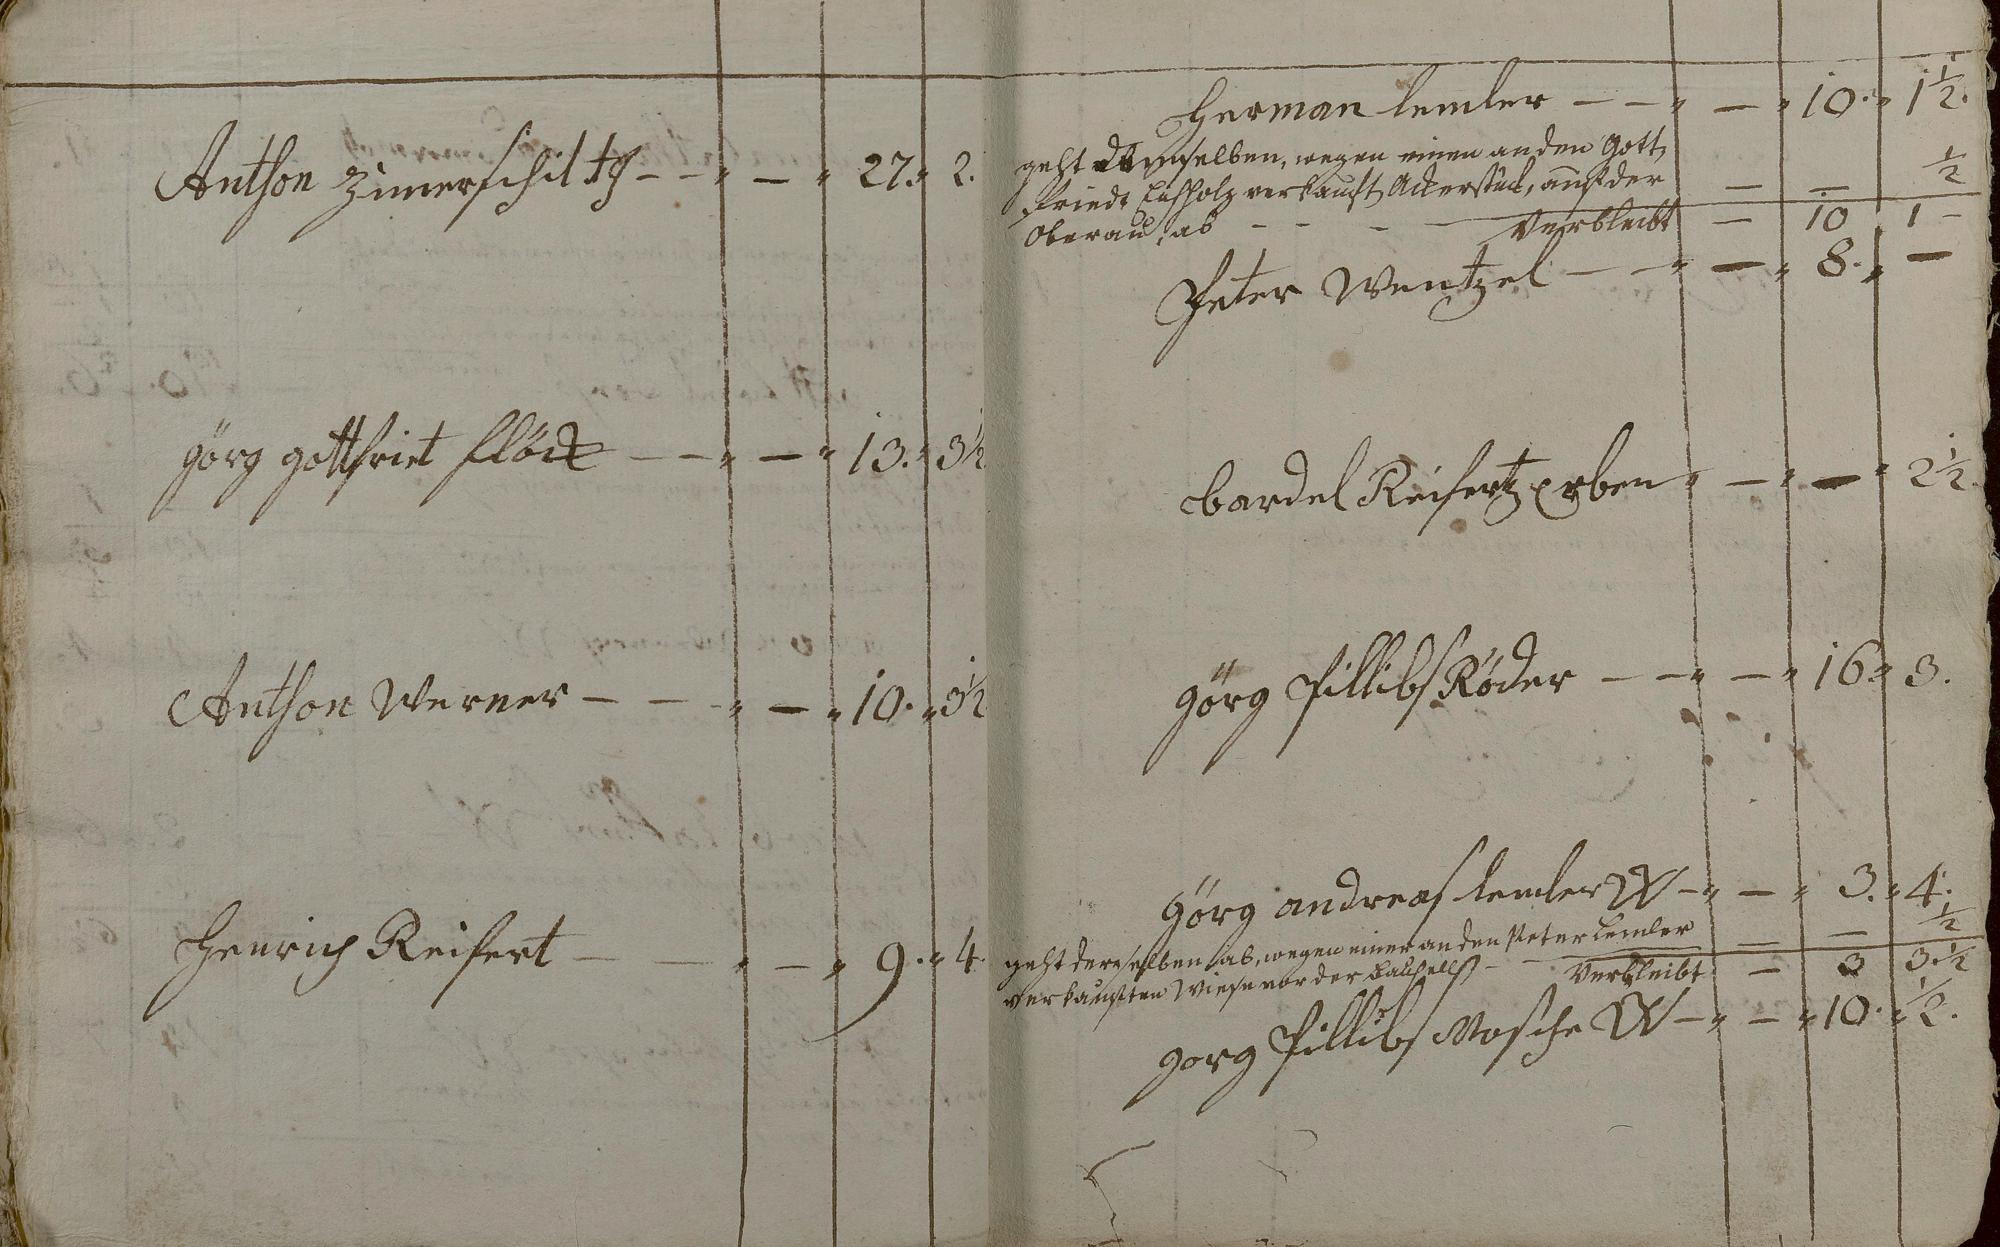 Anthon Zimerschiltz — — — 27. 2.
görg gottfriet flöck — — — 13. 3½
Anthon Werner — — — 10. 3½
Henrich Reifert — — — 9. 4.
Herman Lemler — — — 10. 1½.
geht demselben, wegen einen an den Gott
friedt Eichholz verkauft Ackerstück, auf der — — ½
Oberau, ab — — — — Verbleibt — 10 1 —
Peter Wentzel — — — 8. —
bardel Reifertz Erben — — 2½
görg Pillibs Röder — — — 16. 3.
görg andreas Lemler W — — 3. 4.
geht derselben ab, wegen einer an den Peter Lemler — — ½
verkauften Wiese vor der — Verbleibt — 3 3½
görg Pillibs Mosche W — — 10. ½.